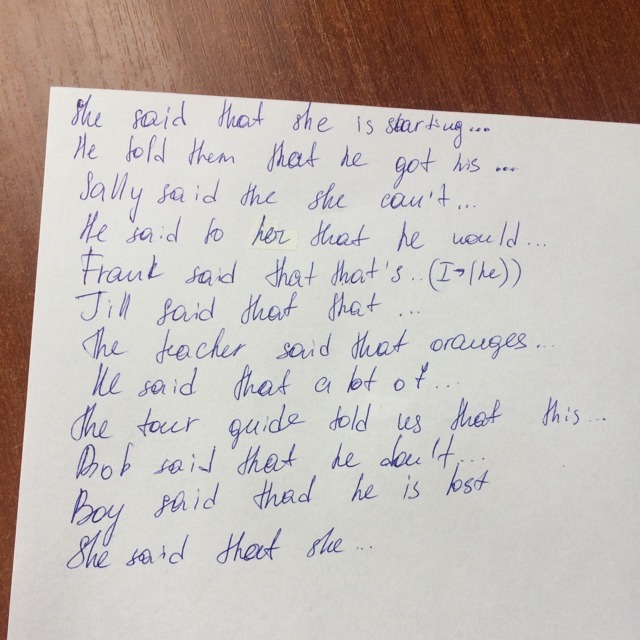 She said that she is starting...
He told them that he got his ...
Sally said the she can't...
He said to her that he would...
Frank said that that's..(I→(he))
Jill said that that ...
The teacher said that oranges...
He said that a lot of...
The tour guide told us that this...
Bob said that he don't...
Boy said thad he is lost
She said that she...